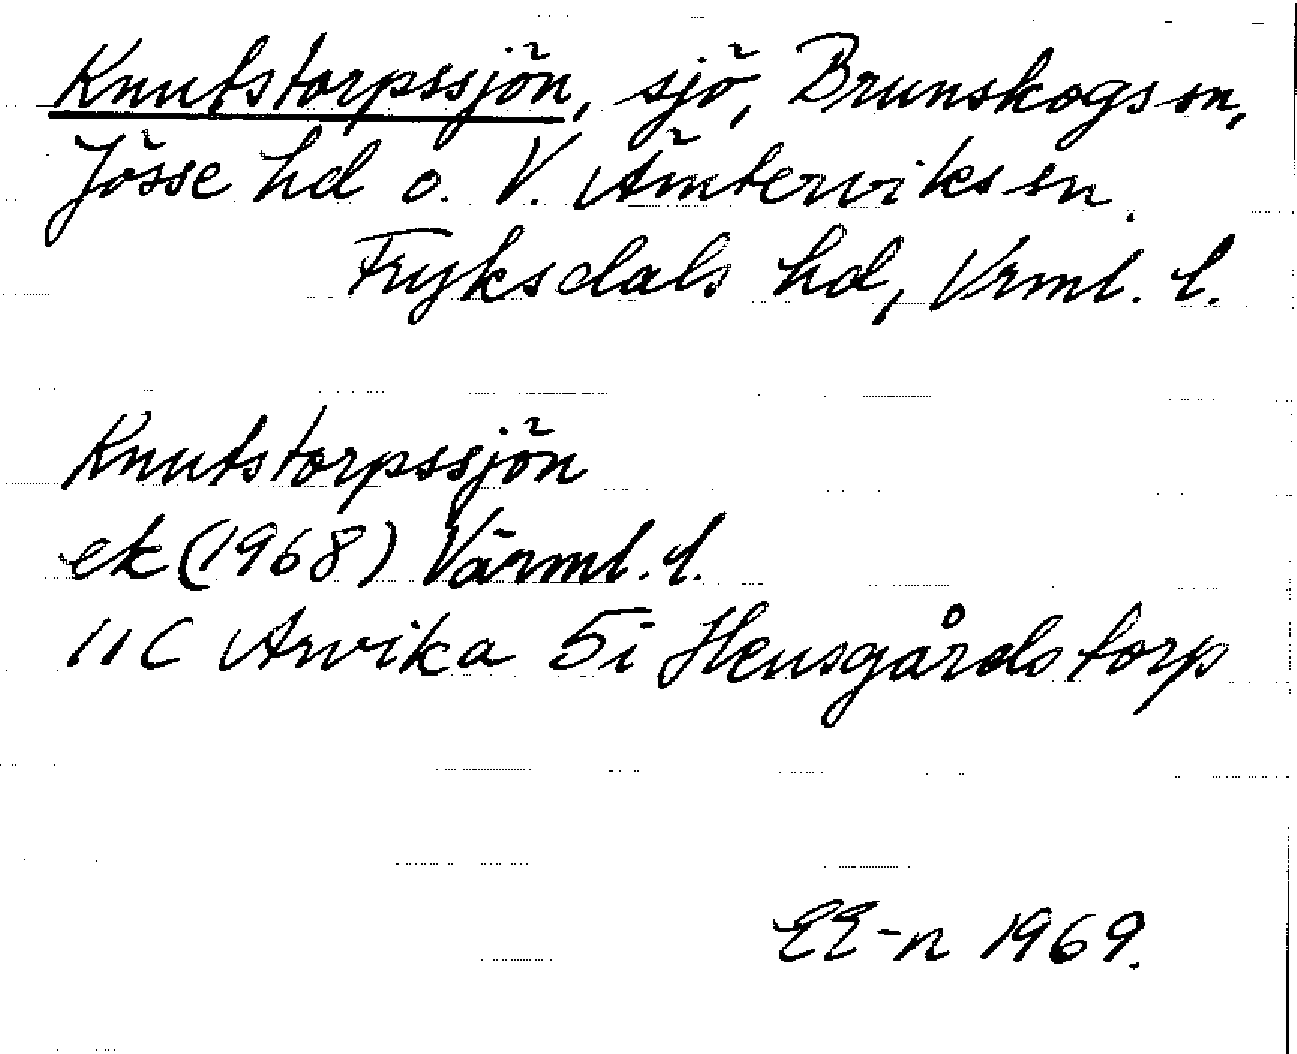 Knutstorpssjön, sjö, Brunskogs sn,
Jösse hd o. V. Ämterviks sn.
Fryksdals hd, Vrml. l.
Knutstorpssjön
ek (1968) Värml. l.
11C Arvika 5i Heusgårdstorp
EE-n 1969.